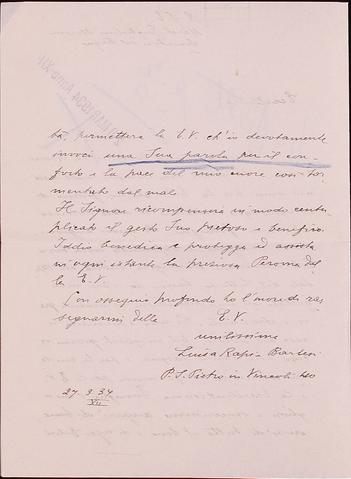 tà, permetterà la E.V. ch'io devotamente
invochi una Sua parola per il con-
forto e la pace del mio cuore così tor-
mentato dal male.
Il Signore ricompensi in modo centu-
plicato il gesto Suo pietoso e benefico.
Iddio benedica e protegga ed assista
in ogni istante la preziosa Persona del-
la E.V.
Con ossequio profondo ho l'onore di ras-
segnarmi della E.V.
umilissima
Luisa
P. S. Pietro in Vincoli
27.3.34
XII
MAR 1934 Anno XII